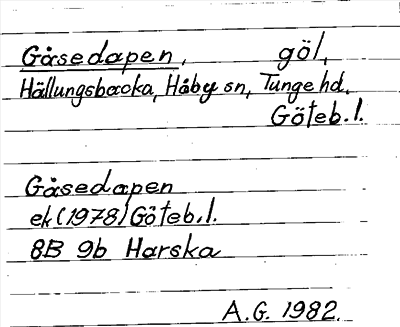 Gåsedapen, göl,
Hällungsbacka, Håby sn, Tunge hd.
Göteb.l.
Gåsedapen
ek (1978) Göteb.l.
8B 9b Harska
A.G. 1982.